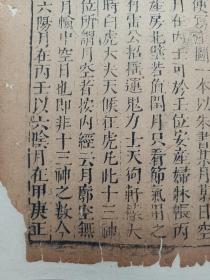 便爲產圖一本以朱書某月某日空
月在丙壬可於壬位安產婦牀帳內
產房北壁若負閏月只看節氣用之
有雷公招搖運鬼力士天狗軒轅大
時白虎大夫天候狂虎凡此十三神
位所謂月空者按內經云月廓空無
月輪中空日也卽非十三神之數今
六陽月在丙壬以六陰月在甲庚正